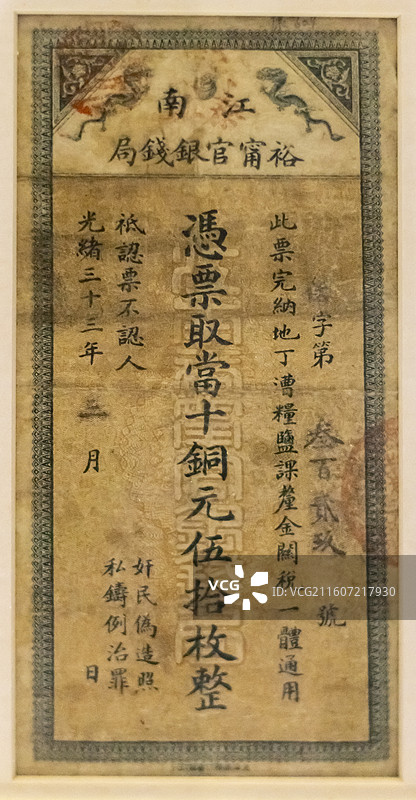 江南
裕甯官銀錢局
字第叁百貳玖號
此票完納地丁漕糧鹽課釐金關稅一體通用
憑票取當十銅元伍拾枚整
祇認票不認人
奸民偽造照
私鑄例治罪
光緒三十三年三月日
VCG
VCG
ID:VCG211607217930